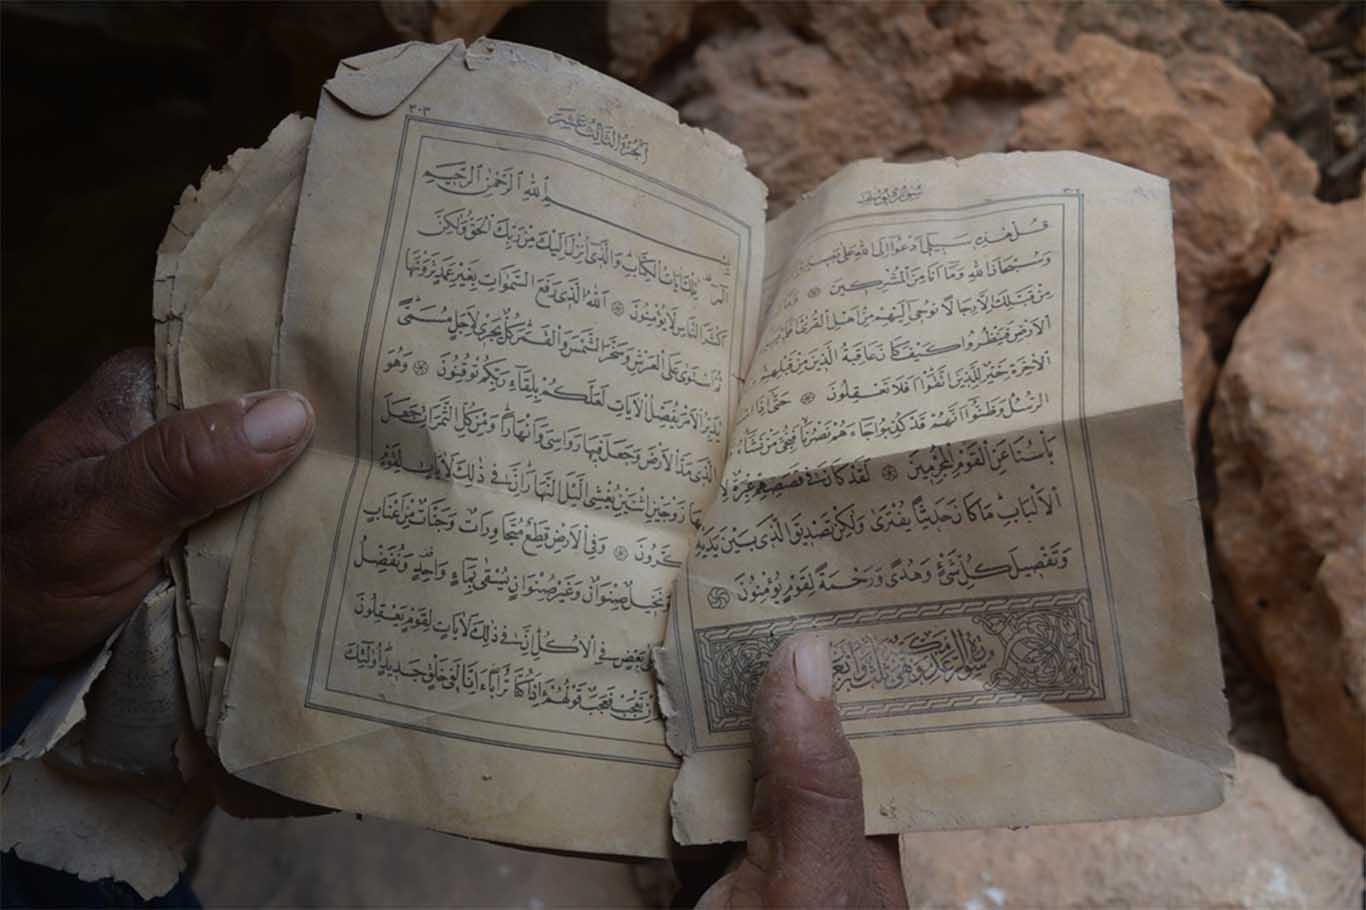 سُورَةُ يُوسُفَ ٣٠٢
قُلْ هٰذِهِ سَبِيلِى اَدْعُوا اِلَى اللّٰهِ عَلٰى
وَسُبْحَانَ اللّٰهِ وَمَا اَنَا مِنَ الْمُشْرِكِينَ ۞ وَمَا
مِنْ قَبْلِكَ اِلَّا رِجَالًا نُوحِى اِلَيْهِمْ مِنْ اَهْلِ الْقُرٰى
الْاَرْضِ فَيَنْظُرُوا كَيْفَ كَانَ عَاقِبَةُ الَّذِينَ مِنْ قَبْلِهِمْ
الْاٰخِرَةِ خَيْرٌ لِلَّذِينَ اتَّقَوْا اَفَلَا تَعْقِلُونَ ۞ حَتّٰى اِذَا
الرُّسُلُ وَظَنُّوا اَنَّهُمْ قَدْ كُذِبُوا جَاءَهُمْ نَصْرُنَا فَنُجِّىَ مَنْ نَشَاءُ
بَأْسُنَا عَنِ الْقَوْمِ الْمُجْرِمِينَ ۞ لَقَدْ كَانَ فِى قَصَصِهِمْ عِبْرَةٌ
الْاَلْبَابِ مَا كَانَ حَدِيثًا يُفْتَرٰى وَلٰكِنْ تَصْدِيقَ الَّذِى بَيْنَ يَدَيْهِ
وَتَفْصِيلَ كُلِّ شَىْءٍ وَهُدًى وَرَحْمَةً لِقَوْمٍ يُؤْمِنُونَ ۞
سُورَةُ الرَّعْدِ مَكِّيَّةٌ وَهِىَ ثَلٰثٌ
اَلْجُزْءُ الثَّالِثَ عَشَرَ ٣٠٣
بِسْمِ اللّٰهِ الرَّحْمٰنِ الرَّحِيمِ
الٓمٓرٰ تِلْكَ اٰيَاتُ الْكِتَابِ وَالَّذِى اُنْزِلَ اِلَيْكَ مِنْ رَبِّكَ الْحَقُّ وَلٰكِنَّ
اَكْثَرَ النَّاسِ لَا يُؤْمِنُونَ ۞ اَللّٰهُ الَّذِى رَفَعَ السَّمٰوَاتِ بِغَيْرِ عَمَدٍ تَرَوْنَهَا
ثُمَّ اسْتَوٰى عَلَى الْعَرْشِ وَسَخَّرَ الشَّمْسَ وَالْقَمَرَ كُلٌّ يَجْرِى لِاَجَلٍ مُسَمًّى
يُدَبِّرُ الْاَمْرَ يُفَصِّلُ الْاٰيَاتِ لَعَلَّكُمْ بِلِقَاءِ رَبِّكُمْ تُوقِنُونَ ۞ وَهُوَ
الَّذِى مَدَّ الْاَرْضَ وَجَعَلَ فِيهَا رَوَاسِىَ وَاَنْهَارًا وَمِنْ كُلِّ الثَّمَرَاتِ جَعَلَ
زَوْجَيْنِ اثْنَيْنِ يُغْشِى الَّيْلَ النَّهَارَ اِنَّ فِى ذٰلِكَ لَاٰيَاتٍ لِقَوْمٍ
وَفِى الْاَرْضِ قِطَعٌ مُتَجَاوِرَاتٌ وَجَنَّاتٌ مِنْ اَعْنَابٍ
وَنَخِيلٌ صِنْوَانٌ وَغَيْرُ صِنْوَانٍ يُسْقٰى بِمَاءٍ وَاحِدٍ وَنُفَضِّلُ
بَعْضٍ فِى الْاُكُلِ اِنَّ فِى ذٰلِكَ لَاٰيَاتٍ لِقَوْمٍ يَعْقِلُونَ
تَعْجَبْ فَعَجَبٌ قَوْلُهُمْ ءَاِذَا كُنَّا تُرَابًا ءَاِنَّا لَفِى خَلْقٍ جَدِيدٍ اُولٰئِكَ